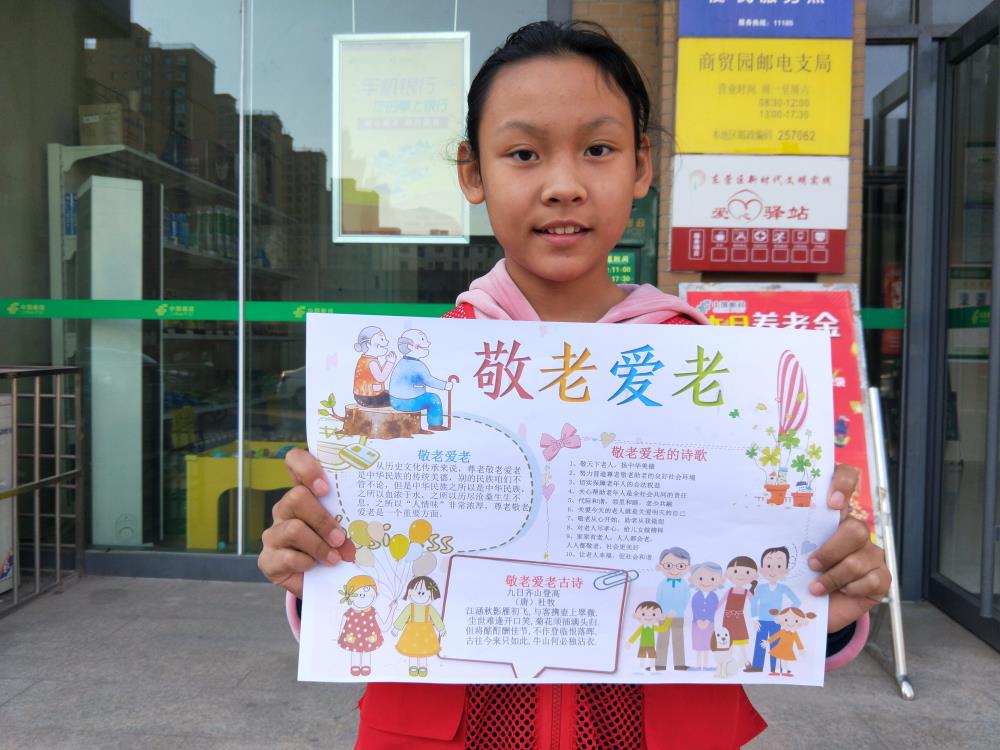 服务热线：11185
商贸园邮电支局
营业时间 周一至周六
08:30-12:00
13:00-17:30
本地区邮政编码 257062
东营区新时代文明实践
爱心驿站
手机银行
中国邮政
中国邮政
中国邮政
中国邮政
养老金
敬老爱老
敬老爱老
从历史文化传承来说，尊老敬老爱老
是中华民族的传统美德，别的民族咱们不
管不论，但是中华民族之所以是中华民族，
之所以血浓于水，之所以历尽沧桑生生不
息，之所以“人情味”非常浓厚，尊老敬老
爱老是一个重要方面。
敬老爱老的诗歌
1、敬天下老人，扬中华美德
2、努力营造尊老敬老助老的良好社会环境
3、切实保障老年人的合法权益
4、关心帮助老年人是全社会共同的责任
5、代际和谐，邻里和睦，老少共融
6、关爱今天的老人就是关爱明天的自己
7、敬老从心开始，助老从我做起
8、对老人尽孝心，给儿女做榜样
9、家家有老人，人人都会老。
人人都敬老，社会更美好
10、让老人幸福，促社会和谐
敬老爱老古诗
九日齐山登高
（唐）杜牧
江涵秋影雁初飞，与客携壶上翠微。
尘世难逢开口笑，菊花须插满头归。
但将酩酊酬佳节，不作登临恨落晖。
古往今来只如此，牛山何必独沾衣。